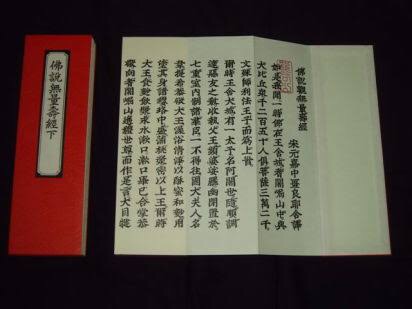 佛說觀無量壽經
宋元嘉中畺良耶舍譯
如是我聞一時佛在王舍城耆闍崛山中與
大比丘衆千二百五十人俱菩薩三萬二千
文殊師利法王子而爲上首
爾時王舍大城有一太子名阿闍世隨順調
達惡友之教收執父王頻婆娑羅幽閉置於
七重室內制諸羣臣一不得往國大夫人名
韋提希恭敬大王澡浴清淨以酥蜜和麨用
塗其身諸瓔珞中盛蒲桃漿密以上王爾時
大王食麨飲漿求水漱口漱口畢已合掌恭
敬向耆闍崛山遙禮世尊而作是言大目犍
佛說無量壽經下